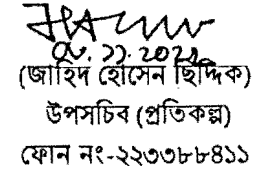 (জাহিদ হোসেন ছিদ্দিক)
উপসচিব (প্রতিকল্প)
ফোন নং-২২৩৩৮৮৪১১